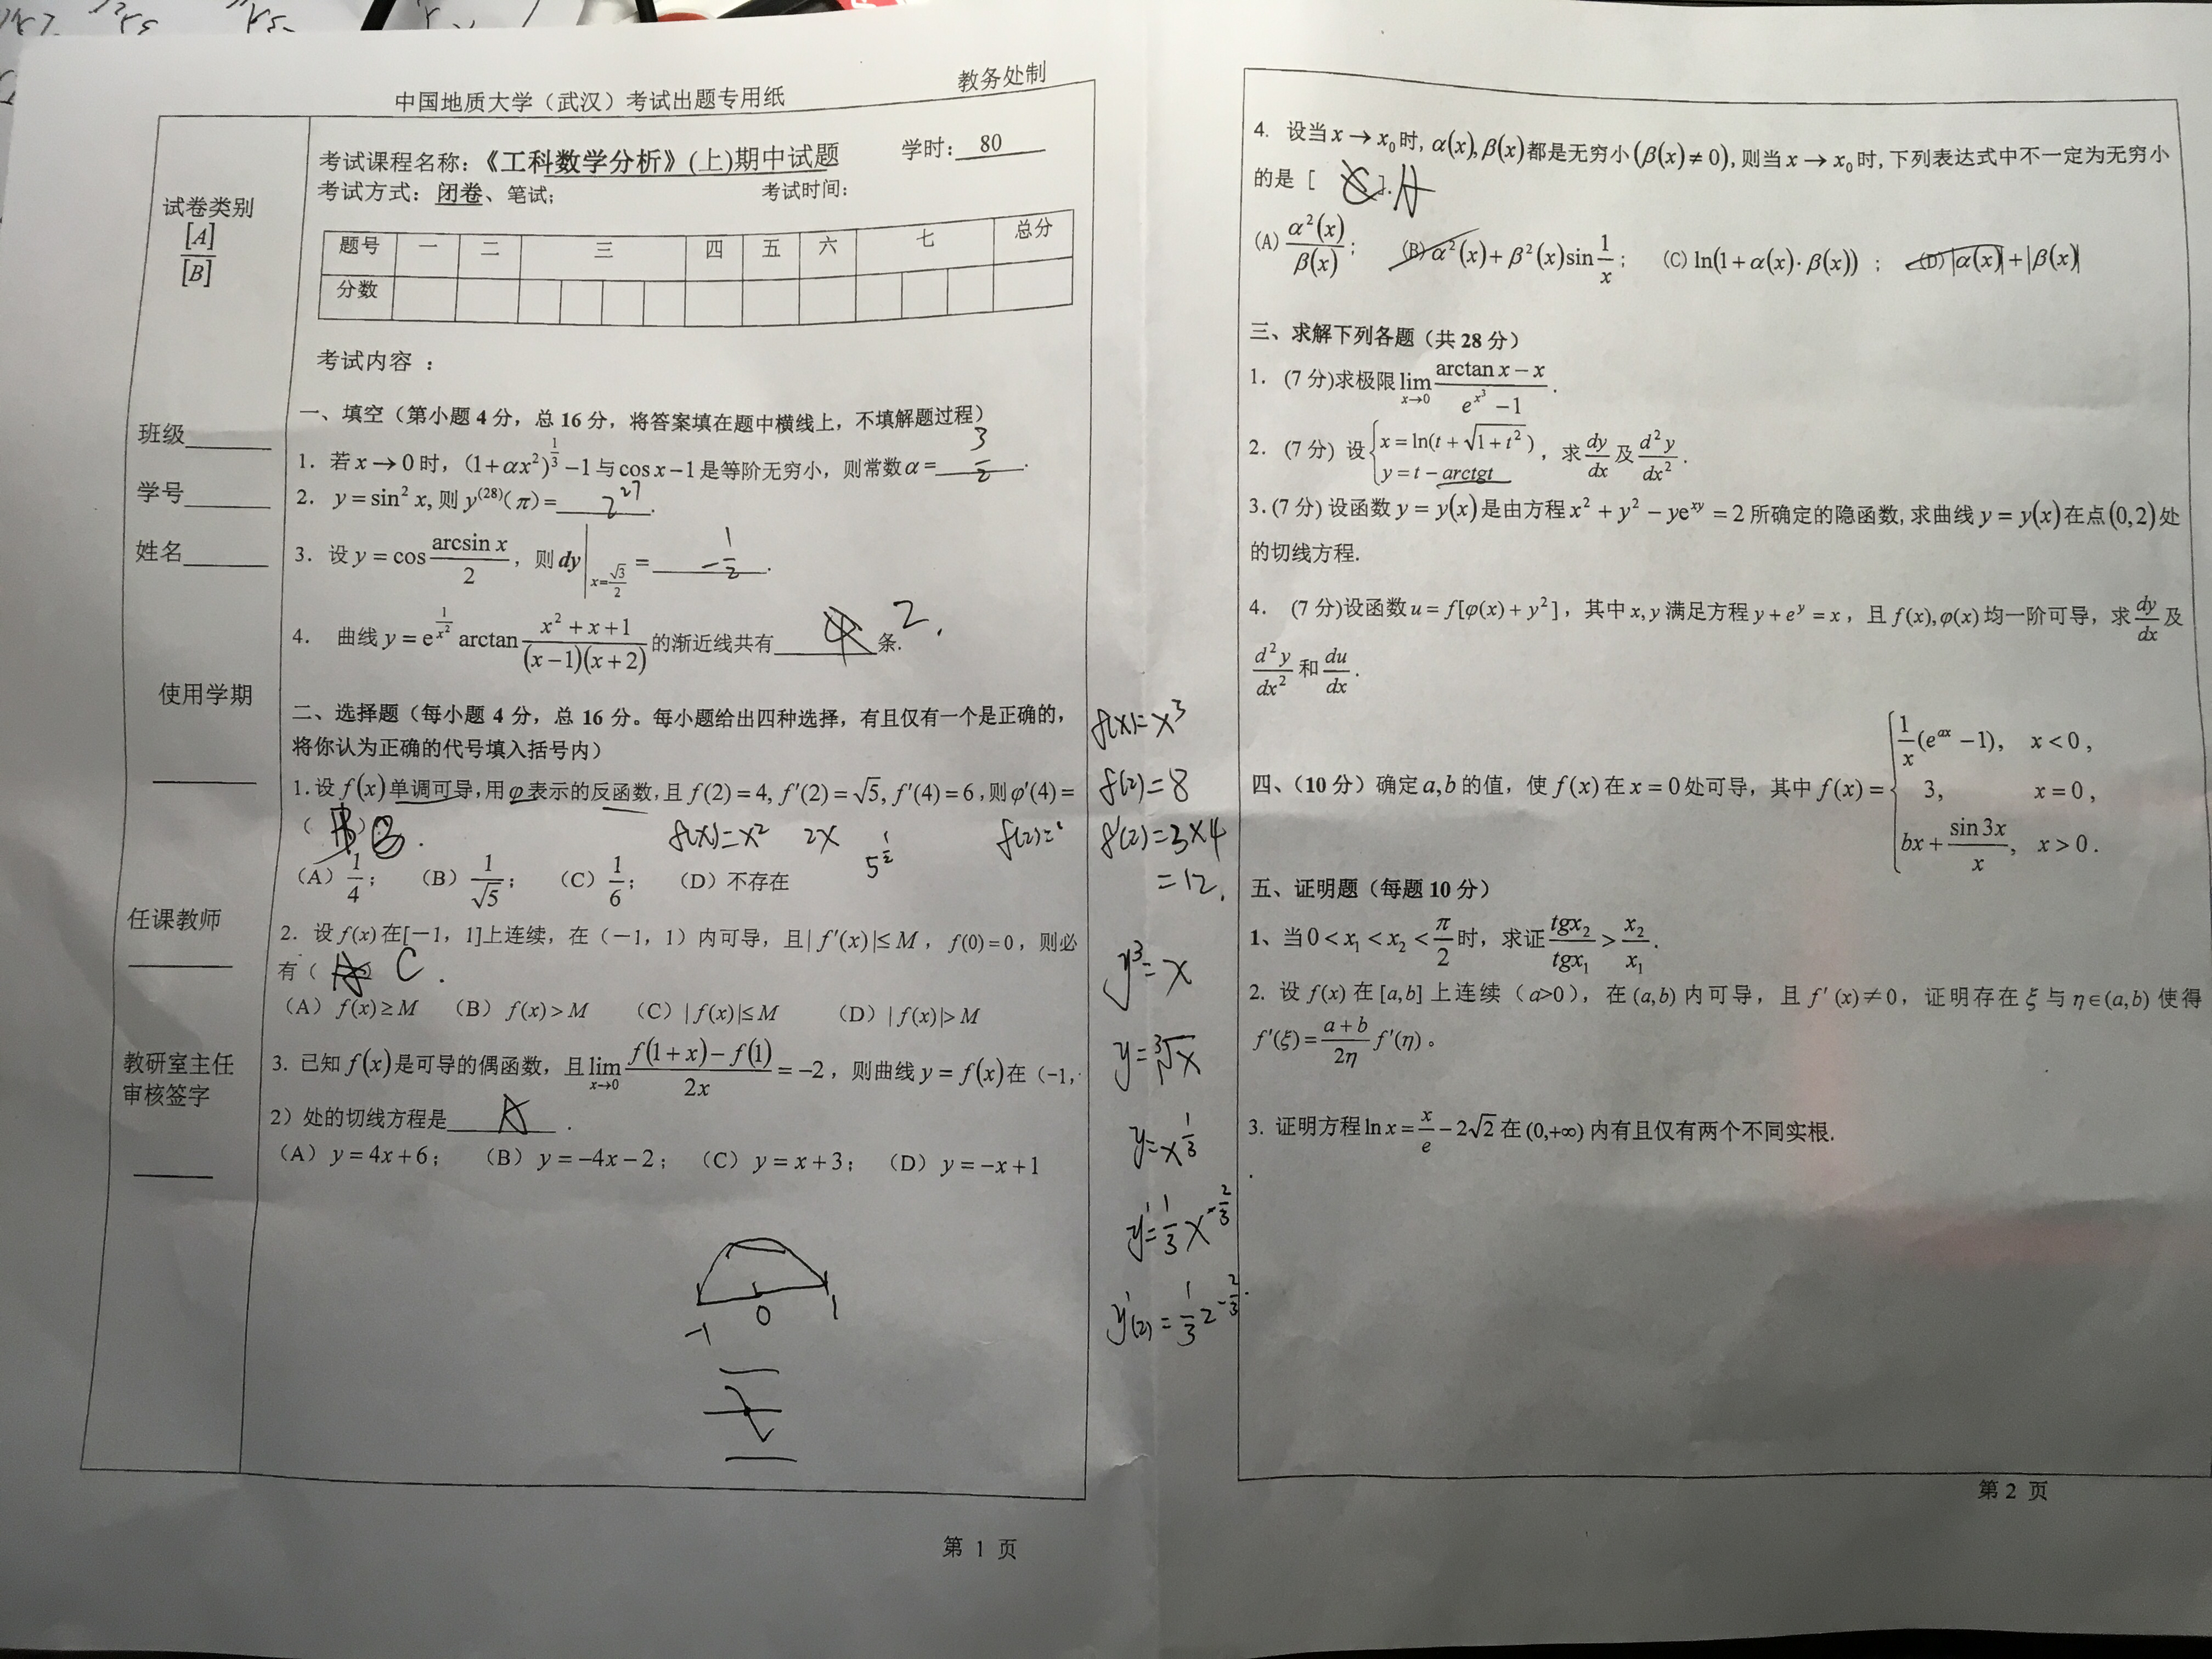 中国地质大学（武汉）考试出题专用纸
教务处制
试卷类别
[A]
[B]
班级
学号
姓名
使用学期
任课教师
教研室主任
审核签字
考试课程名称：《工科数学分析》(上)期中试题 学时: 80
考试方式：闭卷、笔试； 考试时间：
题号 一 二 三 四 五 六 七 总分
分数
考试内容 ：
一、填空（第小题 4 分，总 16 分，将答案填在题中横线上，不填解题过程）
1. 若 x→0 时，(1+αx²)^{1/3} −1 与 cos x −1 是等阶无穷小，则常数 α = 3/2 .
2. y = sin² x, 则 y^{(28)}(π) = 2^{27} .
3. 设 y = cos (arcsin x)/2 ，则 dy|_{x=√3/2} = −1/2 .
4. 曲线 y = e^{1/x²} arctan (x²+x+1)/((x−1)(x+2)) 的渐近线共有 4 条. 2.
二、选择题（每小题 4 分，总 16 分。每小题给出四种选择，有且仅有一个是正确的，
将你认为正确的代号填入括号内）
1.设 f(x) 单调可导，用 φ 表示的反函数，且 f(2) = 4, f′(2) = √5, f′(4) = 6 ,则 φ′(4) =
（ ） B .
f(x)=x² 2x 5^{1/2} f(2)=
（A）1/4； （B）1/√5； （C）1/6； （D）不存在
2. 设 f(x) 在[−1，1]上连续，在（−1，1）内可导，且 | f′(x)|≤ M ， f(0) = 0 ，则必
有（ A ） C .
（A）f(x) ≥ M （B）f(x) > M （C）| f(x)|≤ M （D）| f(x)|> M
3. 已知 f(x) 是可导的偶函数，且 lim_{x→0} (f(1+x)−f(1))/2x = −2 ，则曲线 y = f(x) 在（−1，
2）处的切线方程是 A .
（A）y = 4x + 6； （B）y = −4x − 2； （C）y = x + 3； （D）y = −x + 1
−1 0 1
第 1 页
f(x)=x³
f(2)=8
f′(2)=3×4
=12.
y³=x
y=∛x
y=x^{1/3}
y′=1/3 x^{−2/3}
y′(2)=1/3 2^{−2/3}.
4. 设当 x → x₀ 时, α(x), β(x) 都是无穷小 (β(x) ≠ 0), 则当 x → x₀ 时, 下列表达式中不一定为无穷小
的是 [ C ]. A
(A) α²(x)/β(x)； (B) α²(x)+β²(x)sin 1/x； (C) ln(1+α(x)·β(x)) ； (D) |α(x)|+|β(x)|
三、求解下列各题（共 28 分）
1. (7 分)求极限 lim_{x→0} (arctan x − x)/(e^{x³} −1) .
2. (7 分) 设 {x = ln(t+√(1+t²)) y = t − arctgt ，求 dy/dx 及 d²y/dx² .
3. (7 分) 设函数 y = y(x) 是由方程 x² + y² − ye^{xy} = 2 所确定的隐函数, 求曲线 y = y(x) 在点 (0,2) 处
的切线方程.
4. (7 分)设函数 u = f[φ(x) + y²] ，其中 x, y 满足方程 y + e^y = x ，且 f(x), φ(x) 均一阶可导，求 dy/dx 及
d²y/dx² 和 du/dx .
四、（10 分）确定 a,b 的值，使 f(x) 在 x = 0 处可导，其中 f(x) = { 1/x (e^{ax} −1), x < 0 , 3, x = 0 , bx + sin 3x/x , x > 0 .
五、证明题（每题 10 分）
1、当 0 < x₁ < x₂ < π/2 时，求证 tgx₂/tgx₁ > x₂/x₁ .
2. 设 f(x) 在 [a,b] 上连续（a>0），在 (a,b) 内可导，且 f′(x) ≠ 0，证明存在 ξ 与 η∈(a,b) 使得
f′(ξ) = (a+b)/2η f′(η) 。
3. 证明方程 ln x = x/e − 2√2 在 (0,+∞) 内有且仅有两个不同实根.
第 2 页